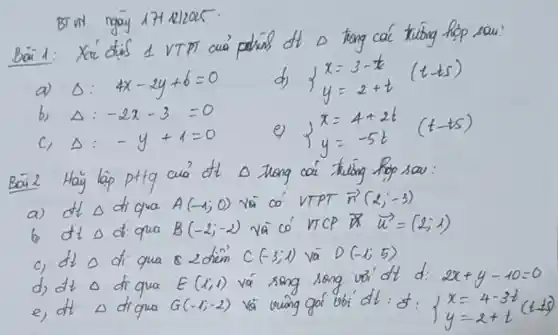 BT VN ngày 17/12/2025.
Bài 1: Xác định 1 VTPT của ptrình đt Δ trong các trường hợp sau:
a) Δ: 4x - 2y + 6 = 0
b, Δ: -2x - 3 = 0
c, Δ: - y + 1 = 0
d, { x = 3 - t
y = 2 + t (t-ts)
e) { x = 4 + 2t
y = -5t (t-ts)
Bài 2 Hãy lập pttq của đt Δ trong các trường hợp sau:
a) đt Δ đi qua A(-1; 0) và có VTPT n (2; -3)
b, đt Δ đi qua B(-2; -2) và có VTCP u = (2; 1)
c, đt Δ đi qua 2 điểm C(-3; 1) và D(-1; 5)
d, đt Δ đi qua E(1; 1) và song song với đt d: 2x + y - 10 = 0
e, đt Δ đi qua G(-1; -2) và vuông góc với đt: d: { x = 4 - 3t
y = 2 + t (t-ts)